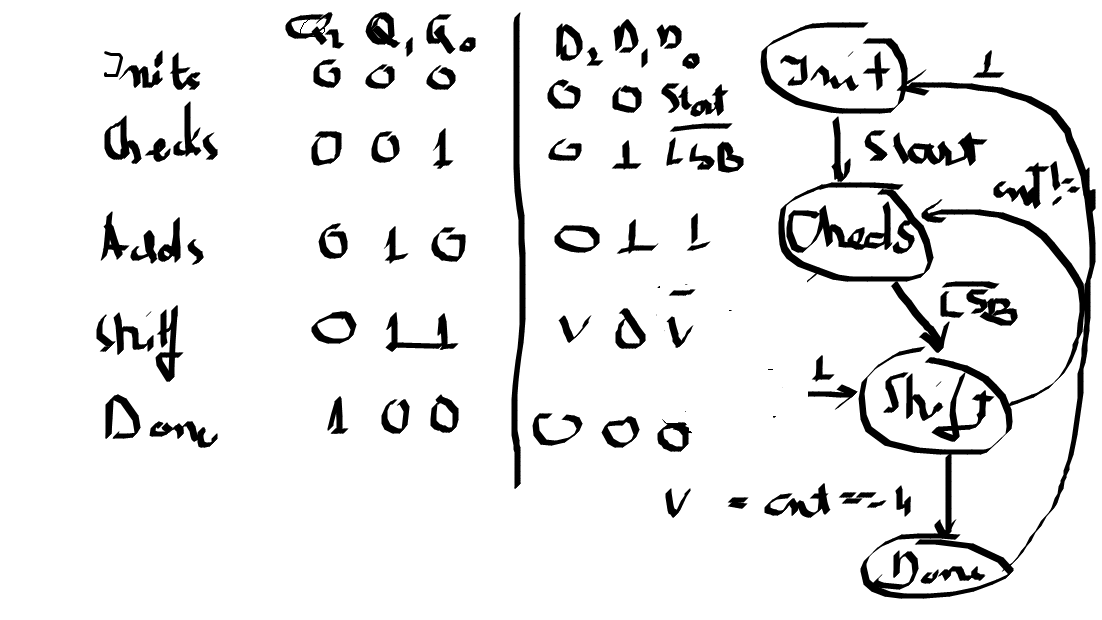 Q₂ Q₁ Q₀ D₂ D₁ D₀
Inits 0 0 0 0 0 Start
Checks 0 0 1 0 1 L̅S̅B̅
Adds 0 1 0 0 1 1
Shift 0 1 1 V 0 V̅
Done 1 0 0 0 0 0
V = cnt == 4
Init
1
Start
cnt!=4
Checks
L̅S̅B̅
1
Shift
Done